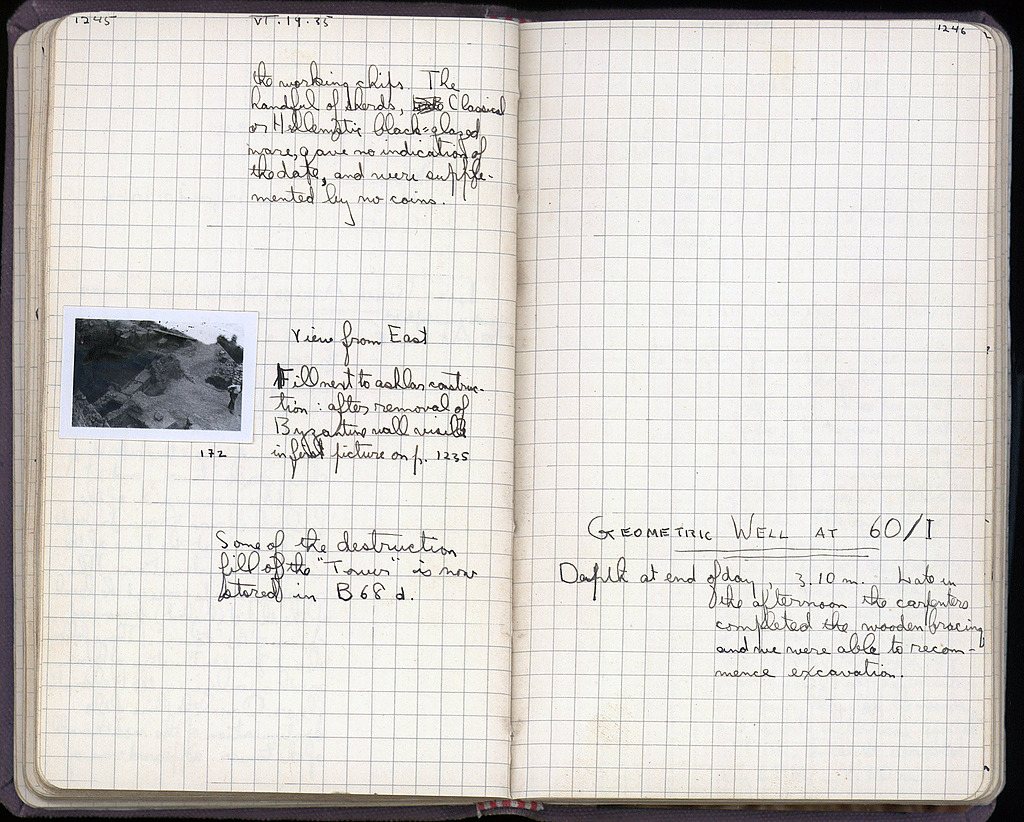 1245 VI.19.35
the working chips. The
handful of sherds, Classical
or Hellenistic black-glazed
ware, gave no indication of
the date, and were supple-
mented by no coins.
View from East
Fill next to ashlar construc-
tion: after removal of
Byzantine wall visible
in first picture on p. 1235
172
Some of the destruction
fill of the "Tower" is now
stored in B 68 d.
1246
GEOMETRIC WELL AT 60/I
Depth at end of day, 3.10 m. Late in
the afternoon the carpenters
completed the wooden bracing
and we were able to recom-
mence excavation.